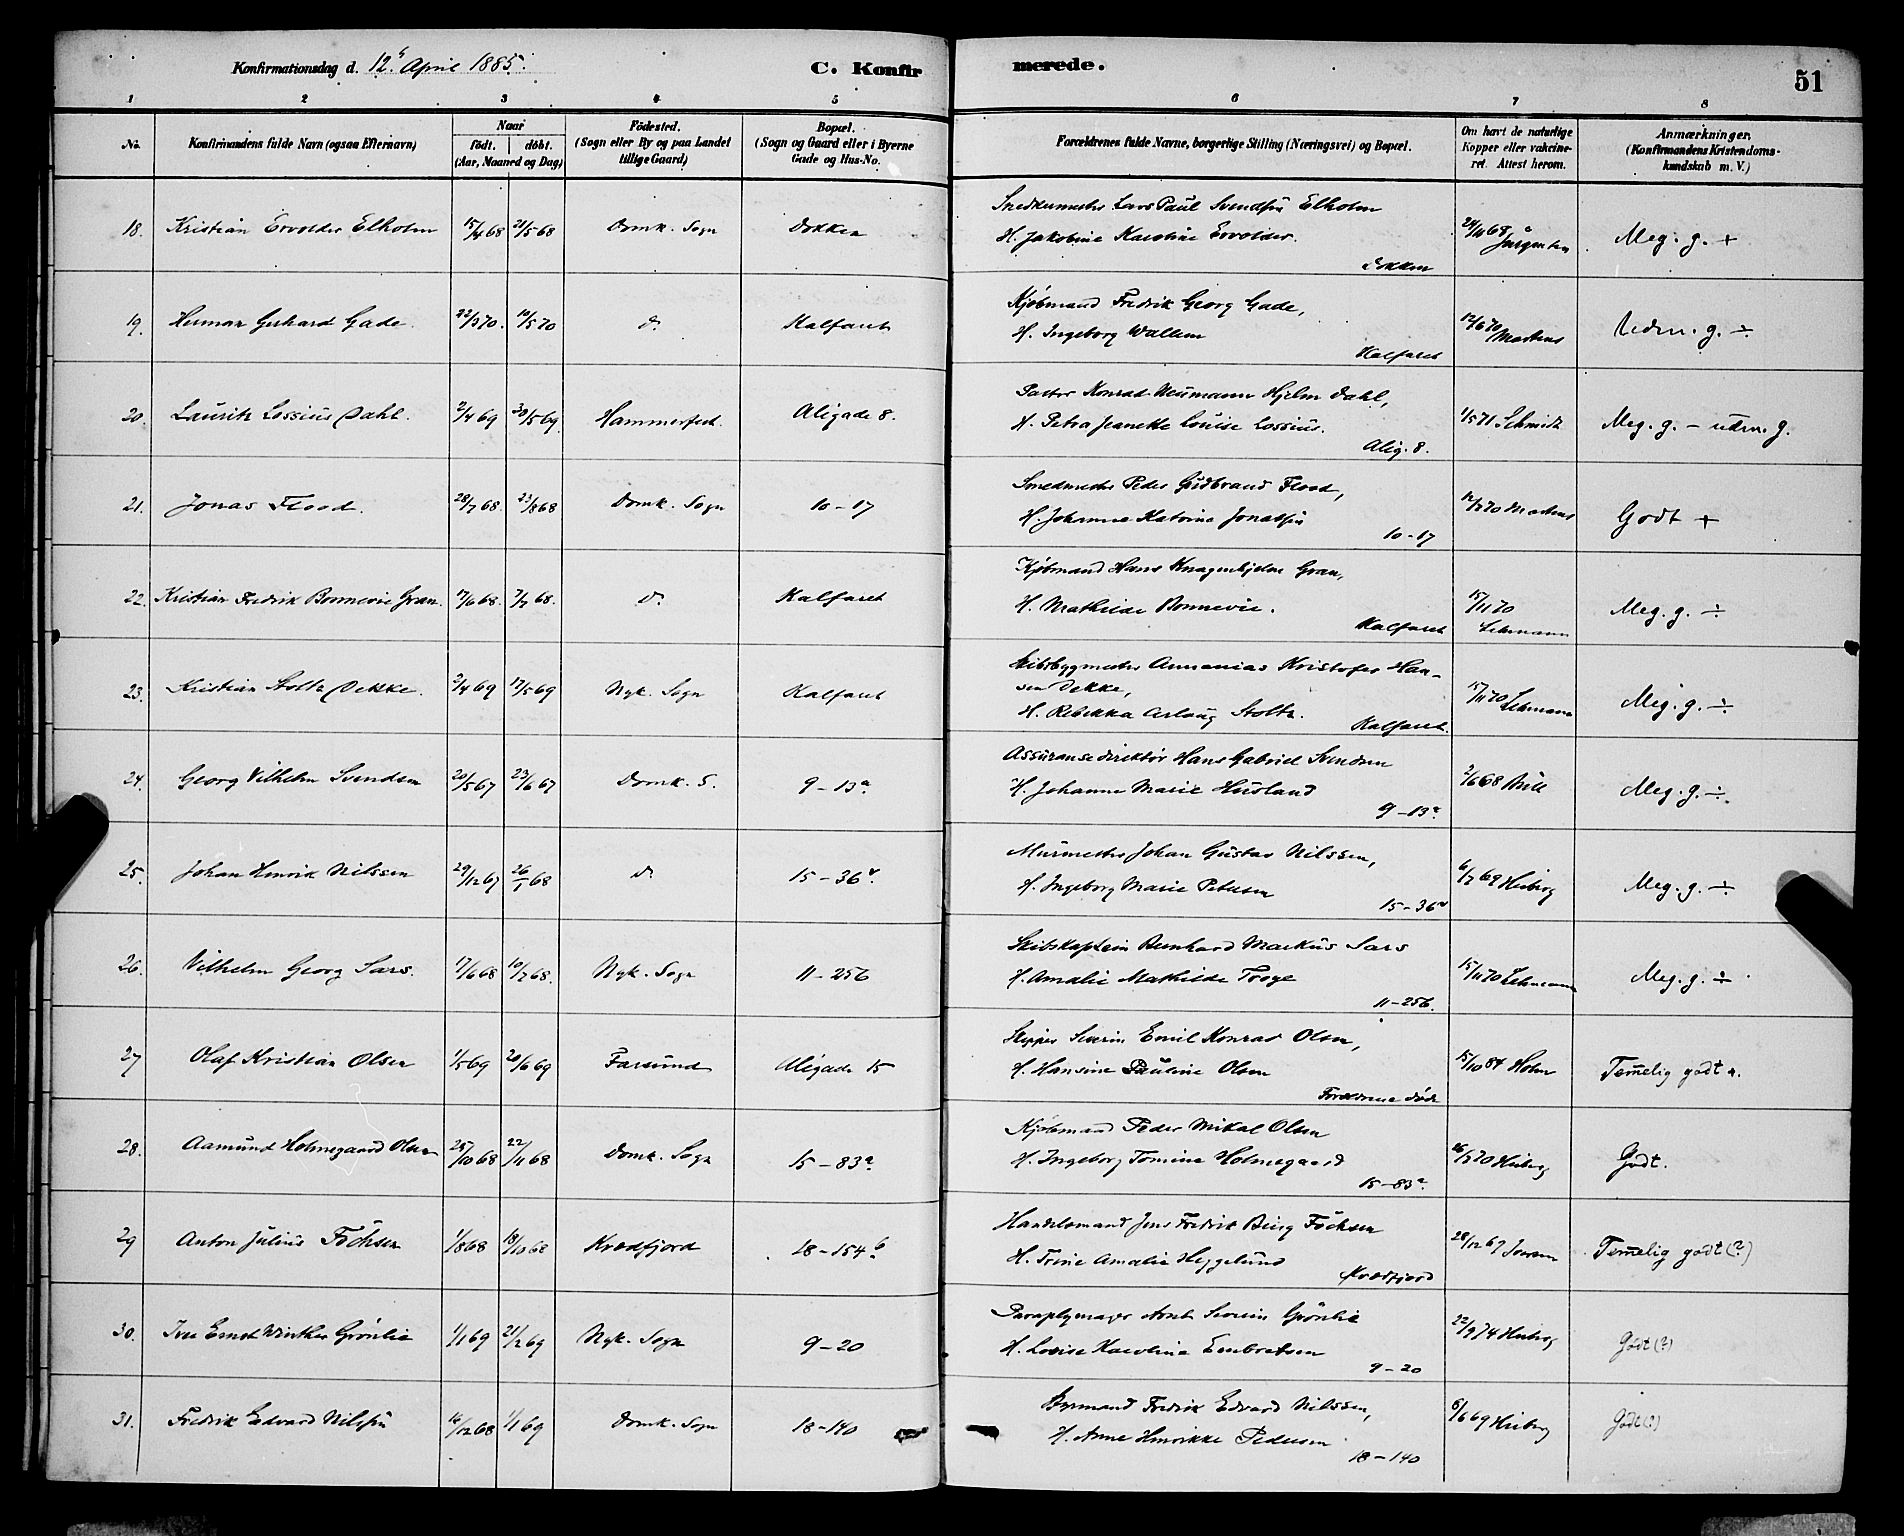 Konfirmationsdag d. 12. April 1885. C. Konfirmerede. 51
1 2 3 4 5 6 7 8
No. Konfirmandens fulde Navn (ogsaa Efternavn) Naar født. døbt. (Aar, Maaned og Dag) Fødested. (Sogn eller By og paa Landet tillige Gaard) Bopæl. (Sogn og Gaard eller i Byerne Gade og Hus-No. Forældrenes fulde Navne, borgerlige Stilling (Næringsvei) og Bopæl. Om havt de naturlige Kopper eller vakcineret. Attest herom. Anmærkninger. (Konfirmandens Kristendomskundskab m. V.)
18. Kristian Ervolder Elholm 15/4 68 21/5 68 Domk. Sogn Dokken Snedkermester Lars Paul Svendsen Elholm
H. Jakobine Karoline Ervolder.
Dokken 24/11 68 Jürgensen Meg. g. +
19. Herman Gerhard Gade. 22/3 70. 10/5 70 do. Kalfaret Kjøbmand Fredrik Georg Gade,
H. Ingeborg Wallem
Kalfaret 12/6 70 Martens Udm. g. ÷
20. Lauritz Lossius Dahl. 2/4 69 30/5 69. Hammerfest. Allégade 8. Pastor Konrad Neumann Hjelm Dahl,
H. Petra Jeanette Louise Lossius.
Alleg. 8. 1/5 71 Schmidt Meg. g. - udm. g.
21. Jonas Flood. 28/7 68. 23/8 68 Domk. Sogn 10-17 Smedmester Peder Gudbrand Flood,
H. Johanne Katrine Jonassen
10-17 12/7 70 Martens Godt +
22. Kristian Fredrik Bonnevie Gran. 17/6 68. 7/7 68. do. Kalfaret Kjøbmand Hans Knagenhjelm Gran,
H. Mathilde Bonnevie.
Kalfaret 15/11 70 Lehmann Meg. g. ÷
23. Kristian Stoltz Dekke. 2/4 69 17/5 69 Nyk. Sogn Kalfaret Skibsbygmester Annanias Kristofer Han-
sen Dekke,
H. Rebekka Aslaug Stoltz.
Kalfaret. 15/11 70 Lehmann Meg. g. ÷
24. Georg Vilhelm Svendsen 20/5 67 23/6 67 Domk. S. 9-13a Assuransedirektør Hans Gabriel Svendsen
H. Johanne Marie Husland
9-13a 2/6 68 Bull Meg. g. ÷
25. Johan Henrik Nilssen 29/12 67 26/1 68 do. 15-36 Murmester Johan Gustav Nilssen,
H. Ingeborg Marie Petersen
15-36 6/7 69 Heiberg Meg. g. ÷
26. Vilhelm Georg Sars. 17/6 68 10/7 68. Nyk. Sogn 11-256 Skibskaptein Bernhard Markus Sars
H. Amalie Mathilde Troye
11-256. 15/11 70 Lehmann Meg. g. ÷
27 Olaf Kristian Olsen 1/5 69 20/6 69 Farsund Allégade 15 Skipper Severin Emil Konrad Olsen,
H. Hansine Pauline Olsen
Forældrene døde 15/10 84 Holm Temelig godt +.
28. Aamund Holmegaard Olsen 25/10 68 22/11 68 Domk. Sogn 15-83a. Kjøbmand Peder Mikal Olsen
H. Ingeborg Tomine Holmegaard
15-83a. 26/7 70 Heiberg Godt.
29 Anton Julius Fochsen 1/8 68 18/10 68 Kvædfjord 18-154b Handelsmand Jens Fredrik Bing Fochsen
H. Trine Amalie Heggelund
Kvædfjord 28/12 69 Temelig godt (?)
30. Iver Ernst Winther Grønlie 1/1 69 21/2 69 Nyk. Sogn 9-20 Paraplymager Arnt Severin Grønlie
H. Lovise Karoline Embretsen
9-20 22/9 74 Heiberg Godt (?)
31. Fredrik Edvard Nilssen 16/12 68 1/1 69 Domk. Sogn 18-140 Styrmand Fredrik Edvard Nilssen,
H. Anne Henrikke Pedersen
18-140 8/6 69 Heiberg Godt (?)